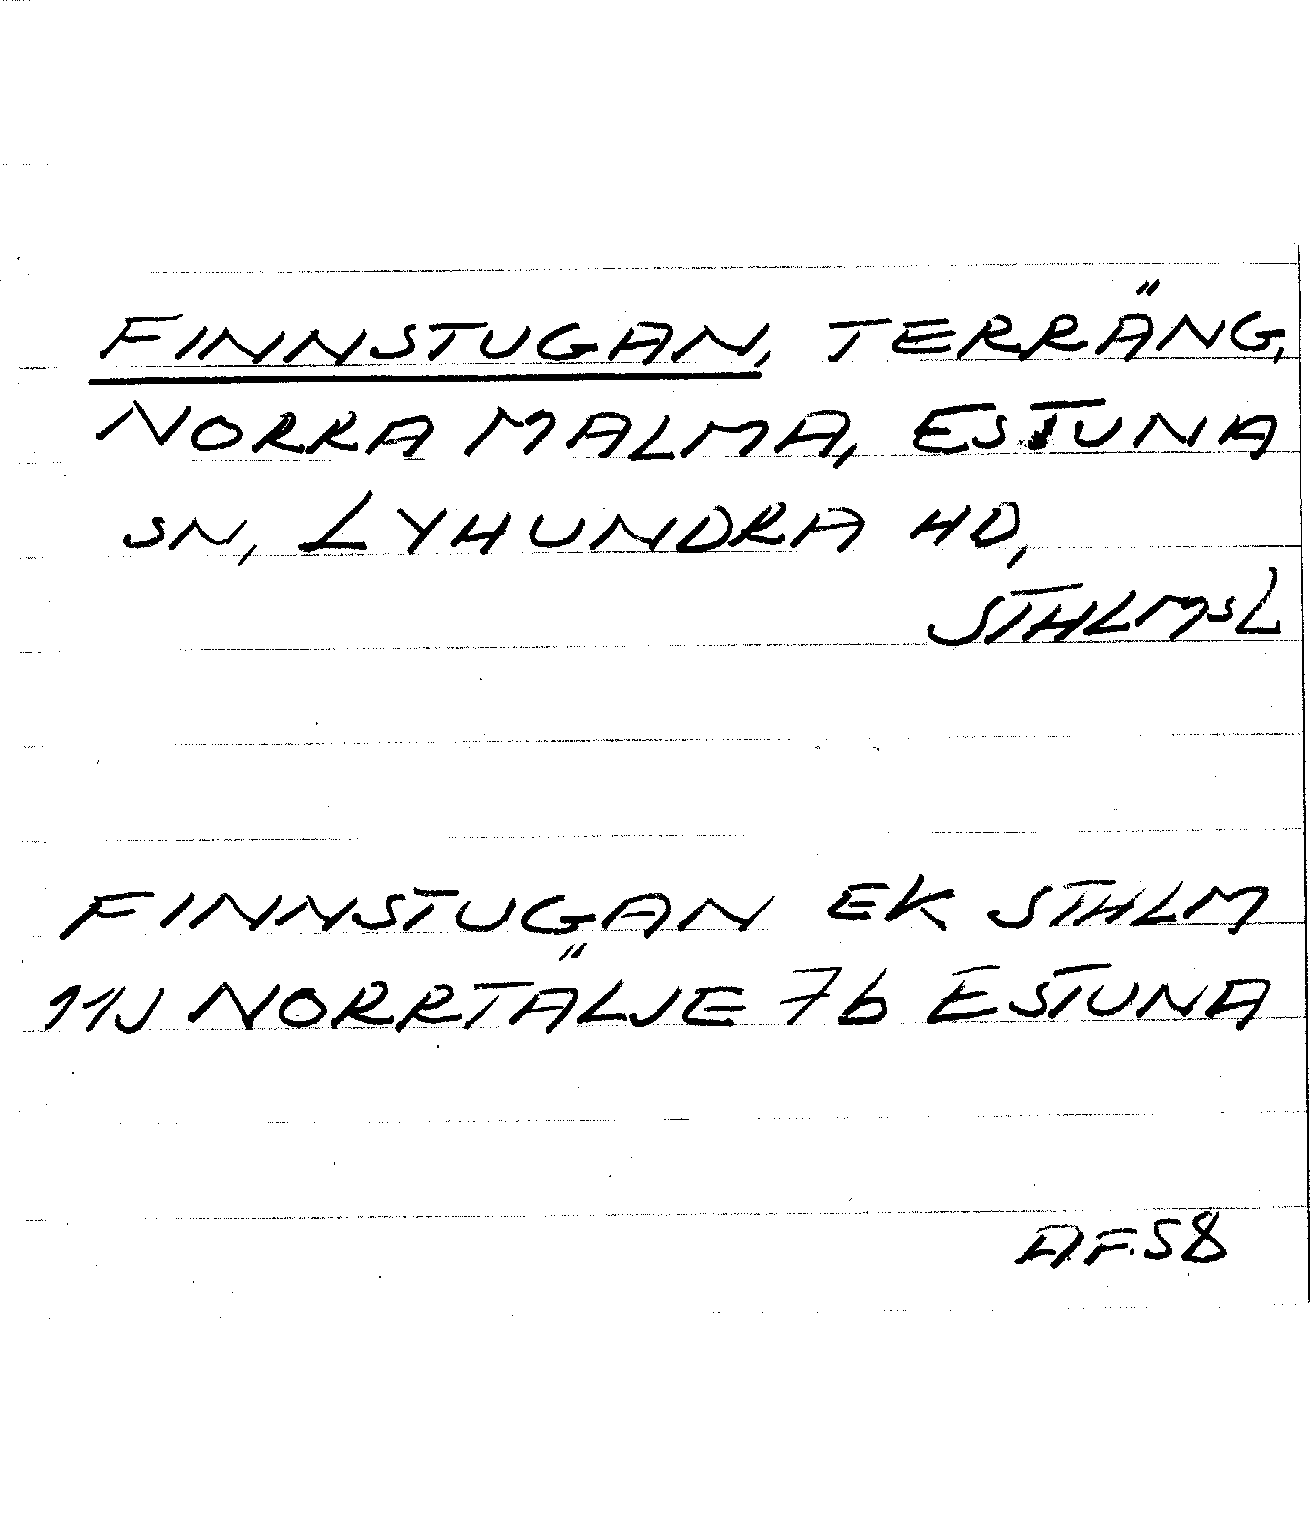 FINNSTUGAN, TERRÄNG,
NORRA MALMA, ESTUNA
SN, LYHUNDRA HD,
STHLMSL
FINNSTUGAN EK STHLM
11J NORRTÄLJE 7b ESTUNA
AF.58